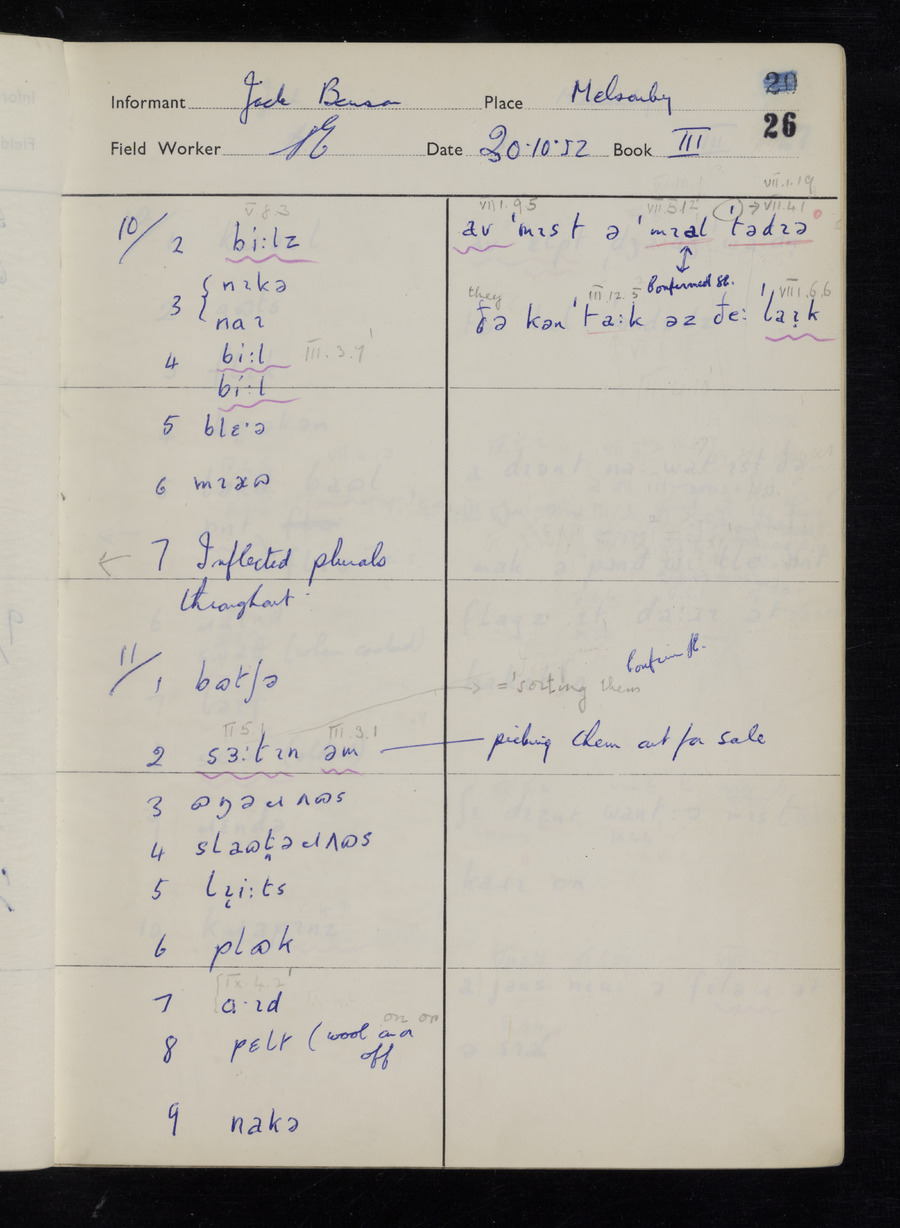 20
26
Informant Jack Benson Place Melsonby
Field Worker SE Date 20.10.52 Book III
V.8.3
10/ 2 bi:lz
3 { nɪkə
naɪ
4 bi:l III.3.7
bi:l
5 blɛ·ə
6
← 7 Inflected plurals
throughout
11/ 1 bɷtʃə
II 5.1 III.3.1
2 sɜ:tɪn əm — picking them out for sale
3 ɷŋəɹʌɷs
4
5
6 plɷk
IX.4.2
7 a·ɪd
8 pɛlt (wool on or
off
on or
9 nakə
VIII.9.5 VII.5.12 (1) → VII.4.1
VII.1.19
av ˈmɪst ə ˈmɪəl tədɪə
↕
Confirmed SE.
they III.12.5 VIII.6.6
ðə kən ˈta:k əz ðe: laɪk
Confirm SE.
→ = 'sorting them